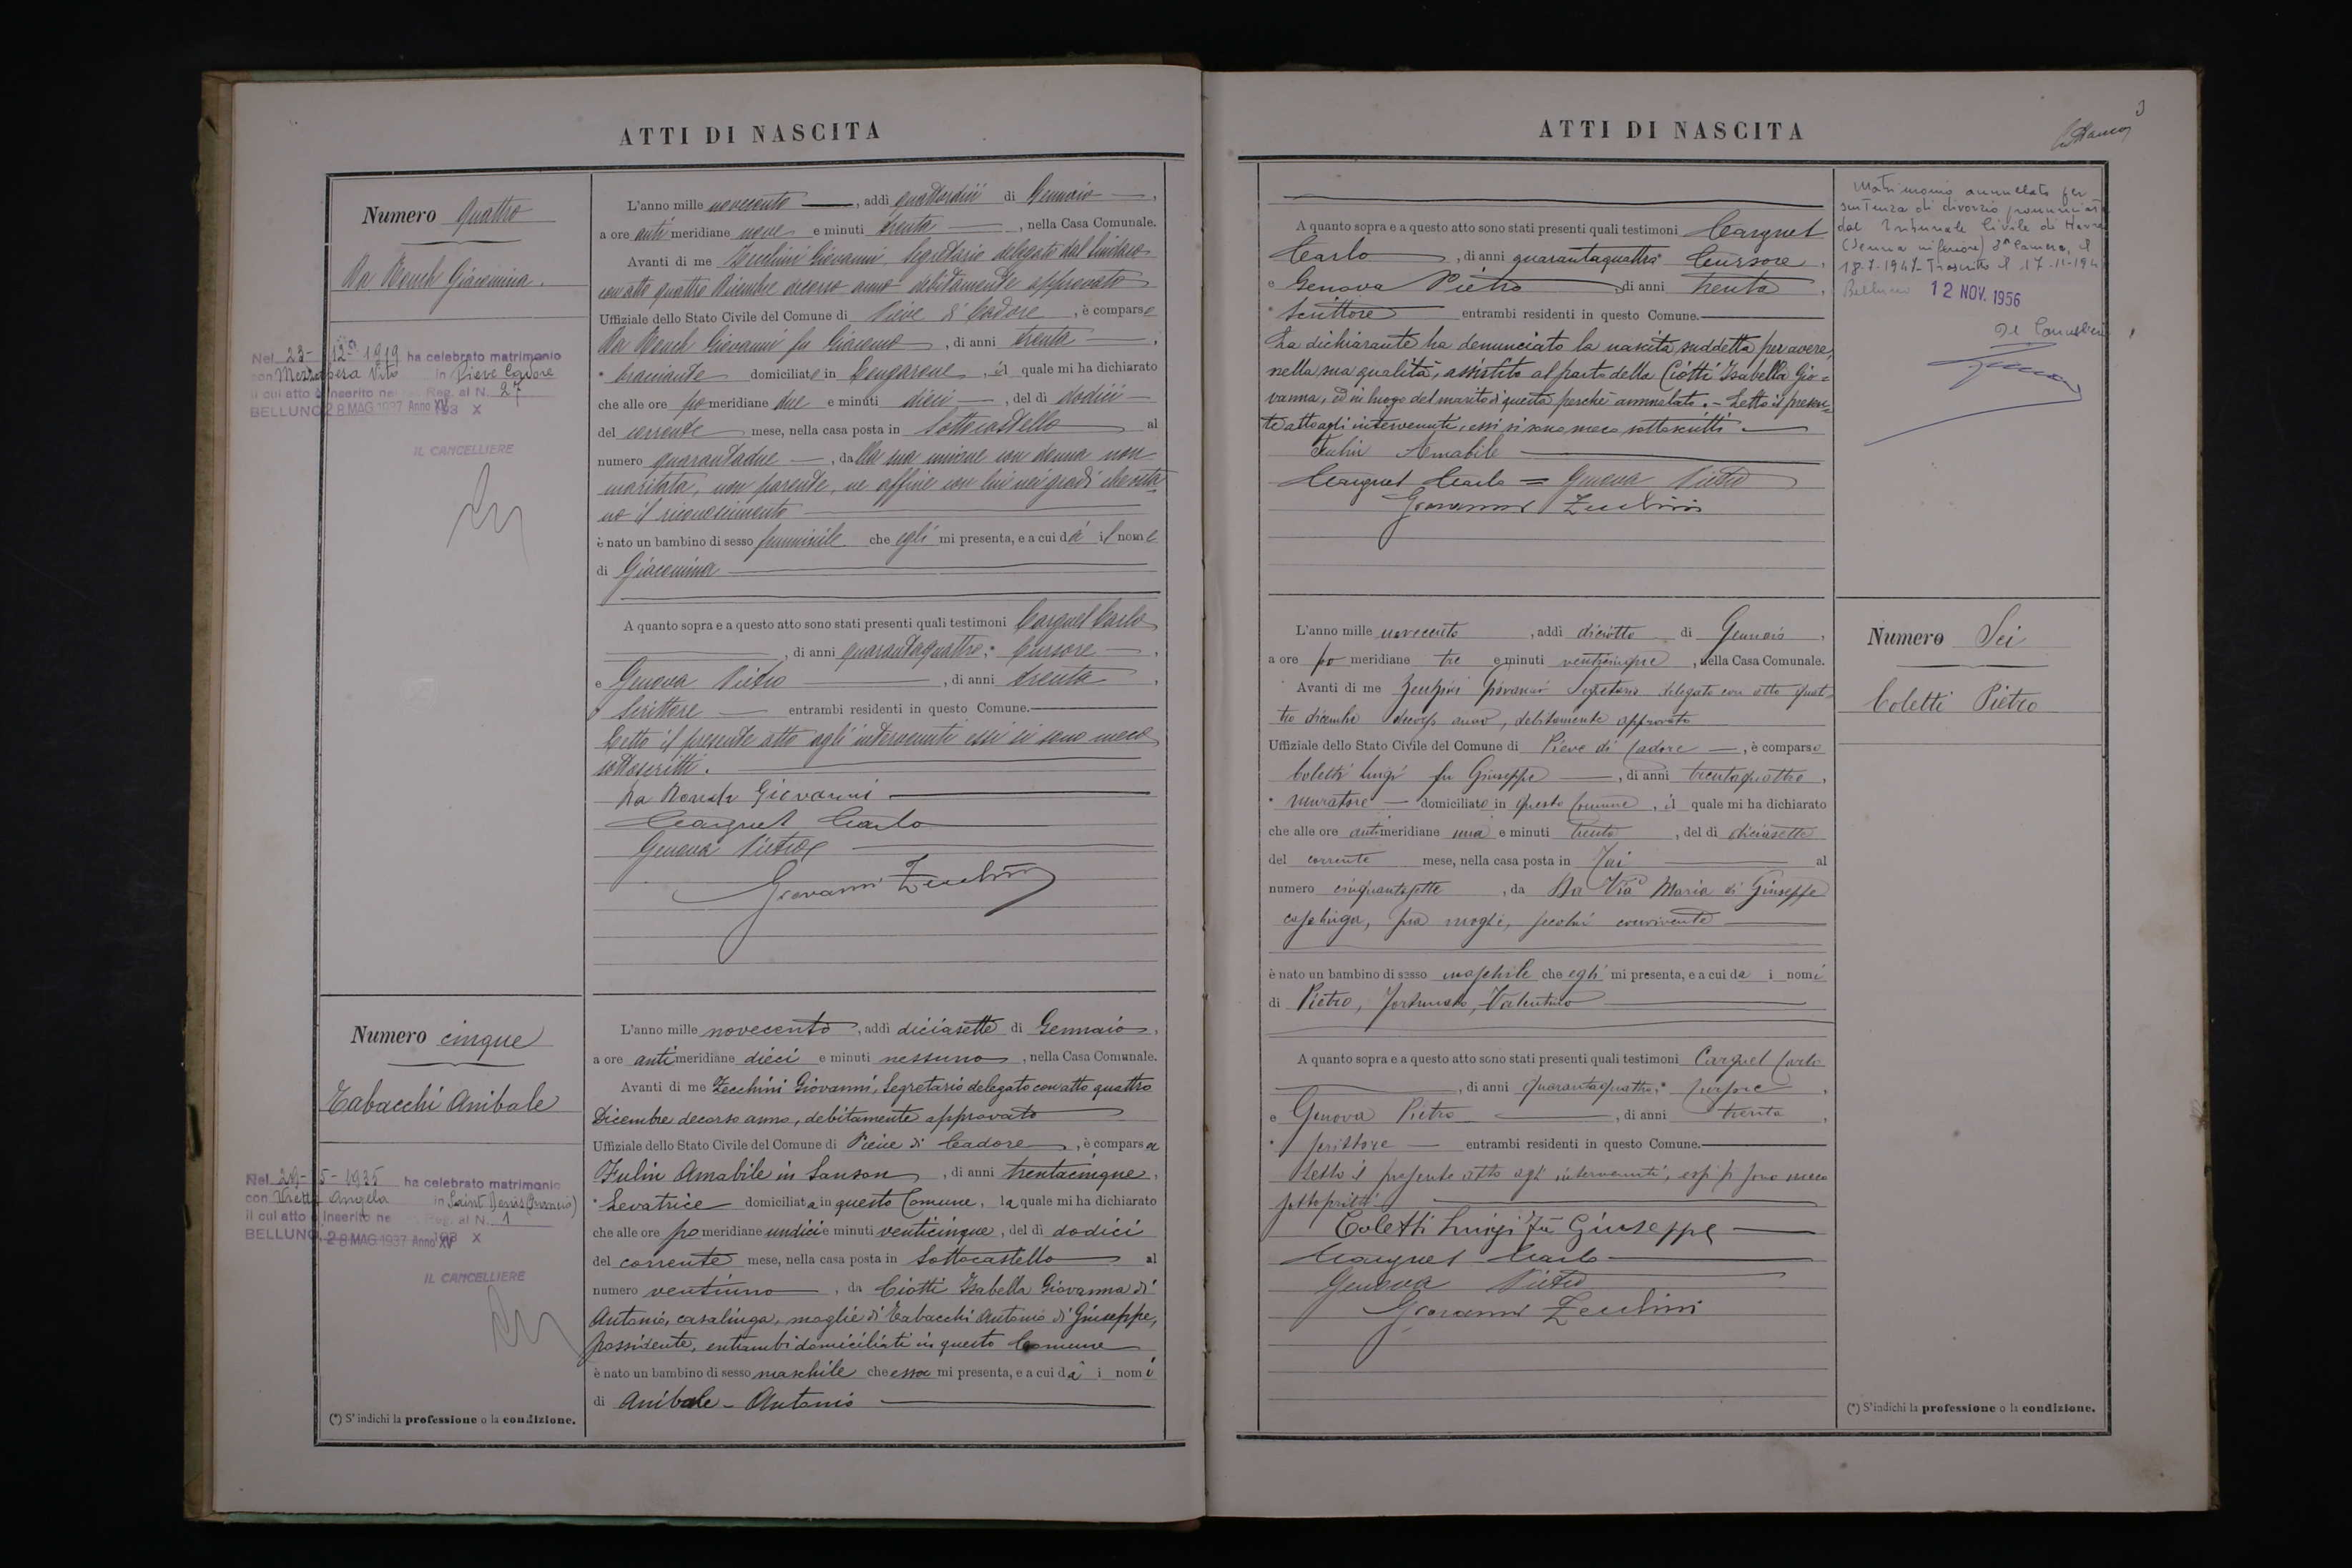 ATTI DI NASCITA
Numero Quattro
Da Ronch Giacomina.
Nel 23-12-1919 ha celebrato matrimonio
con Vito in Pieve Cadore
il cui atto è inserito nel Reg. al N. 27
BELLUNO 28 MAG. 1937 Anno XV
IL CANCELLIERE
L'anno mille novecento, addì quattordici di Gennaio,
a ore anti meridiane nove e minuti trenta, nella Casa Comunale.
Avanti di me Zecchini Giovanni, Segretario delegato dal Sindaco
con atto quattro Dicembre decorso anno debitamente approvato
Uffiziale dello Stato Civile del Comune di Pieve di Cadore, è comparso
Da Ronch Giovanni fu Giacomo, di anni trenta,
* bracciante domiciliato in, il quale mi ha dichiarato
che alle ore po meridiane due e minuti dieci, del dì dodici
del corrente mese, nella casa posta in Sottocastello al
numero quarantadue, dalla sua unione con donna non
maritata, non parente, ne affine con lui nei gradi che osta
no il riconoscimento
è nato un bambino di sesso femminile che egli mi presenta, e a cui dà il nome
di Giacomina
A quanto sopra e a questo atto sono stati presenti quali testimoni Cargnel Carlo
, di anni quarantaquattro, * Cursore,
e Genova Pietro, di anni trenta,
* Scrittore entrambi residenti in questo Comune.
Letto il presente atto agli intervenuti essi si sono meco
sottoscritti.
Da Ronch Giovanni
Cargnel Carlo
Genova Pietro
Giovanni Zecchini
Numero cinque
Tabacchi Anibale
Nel 29-5-1935 ha celebrato matrimonio
con Angela in Saint Denis (Francia)
il cui atto è inserito nel Reg. al N. 1
BELLUNO, 28 MAG. 1937 Anno XV
IL CANCELLIERE
(*) S'indichi la professione o la condizione.
L'anno mille novecento, addì diciasette di Gennaio,
a ore antimeridiane dieci e minuti nessuno, nella Casa Comunale.
Avanti di me Zecchini Giovanni, Segretario delegato con atto quattro
Dicembre decorso anno, debitamente approvato
Uffiziale dello Stato Civile del Comune di Pieve di Cadore, è comparsa
Fulin Amabile in Sanson, di anni trentacinque,
* Levatrice domiciliata in questo Comune, la quale mi ha dichiarato
che alle ore pomeridiane undici e minuti venticinque, del dì dodici
del corrente mese, nella casa posta in Sottocastello al
numero ventiuno, da Ciotti Isabella Giovanna di
Antonio, casalinga, moglie di Tabacchi Antonio di Giuseppe,
possidente, entrambi domiciliati in questo Comune
è nato un bambino di sesso maschile che essa mi presenta, e a cui dà i nomi
di Anibale - Antonio
ATTI DI NASCITA
3
A quanto sopra e a questo atto sono stati presenti quali testimoni Cargnel
Carlo, di anni quarantaquattro * Cursore,
e Genova Pietro, di anni trenta,
* Scrittore entrambi residenti in questo Comune.
La dichiarante ha denunciato la nascita suddetta per avere,
nella sua qualità, assistito al parto della Ciotti Isabella Gio=
vanna, ed in luogo del marito di questa perchè ammalato. - Letto il presen=
te atto agli intervenuti, essi si sono meco sottoscritti
Fulin Amabile
Cargnel Carlo = Genova Pietro
Giovanni Zecchini
Matrimonio annullato per
sentenza di divorzio pronunciata
dal Tribunale Civile di Havre
(Senna inferiore) 3ª Camera, il
18.7.1947. Trascritto il 17-11-194
Belluno 12 NOV. 1956
Il Cancelliere
L'anno mille novecento, addì diciotto di Gennaio,
a ore po meridiane tre e minuti venticinque, nella Casa Comunale.
Avanti di me Zecchini Giovanni Segretario delegato con atto quat
tro dicembre decorso anno, debitamente approvato
Uffiziale dello Stato Civile del Comune di Pieve di Cadore, è comparso
Coletti Luigi fu Giuseppe, di anni trentaquattro,
* muratore domiciliato in questo Comune, il quale mi ha dichiarato
che alle ore antimeridiane una e minuti trenta, del dì diciasette
del corrente mese, nella casa posta in Tai al
numero cinquantasette, da Da Vià Maria di Giuseppe
casalinga, sua moglie, secolui convivente
è nato un bambino di sesso maschile che egli mi presenta, e a cui da i nomi
di Pietro, Fortunato, Valentino
A quanto sopra e a questo atto sono stati presenti quali testimoni Cargnel Carlo
, di anni quarantaquattro, * cursore,
e Genova Pietro, di anni trenta,
* scrittore entrambi residenti in questo Comune.
Letto il presente atto agli intervenuti, essi si sono meco
sottoscritti
Coletti Luigi fu Giuseppe
Cargnel Carlo
Genova Pietro
Giovanni Zecchini
Numero Sei
Coletti Pietro
(*) S'indichi la professione o la condizione.